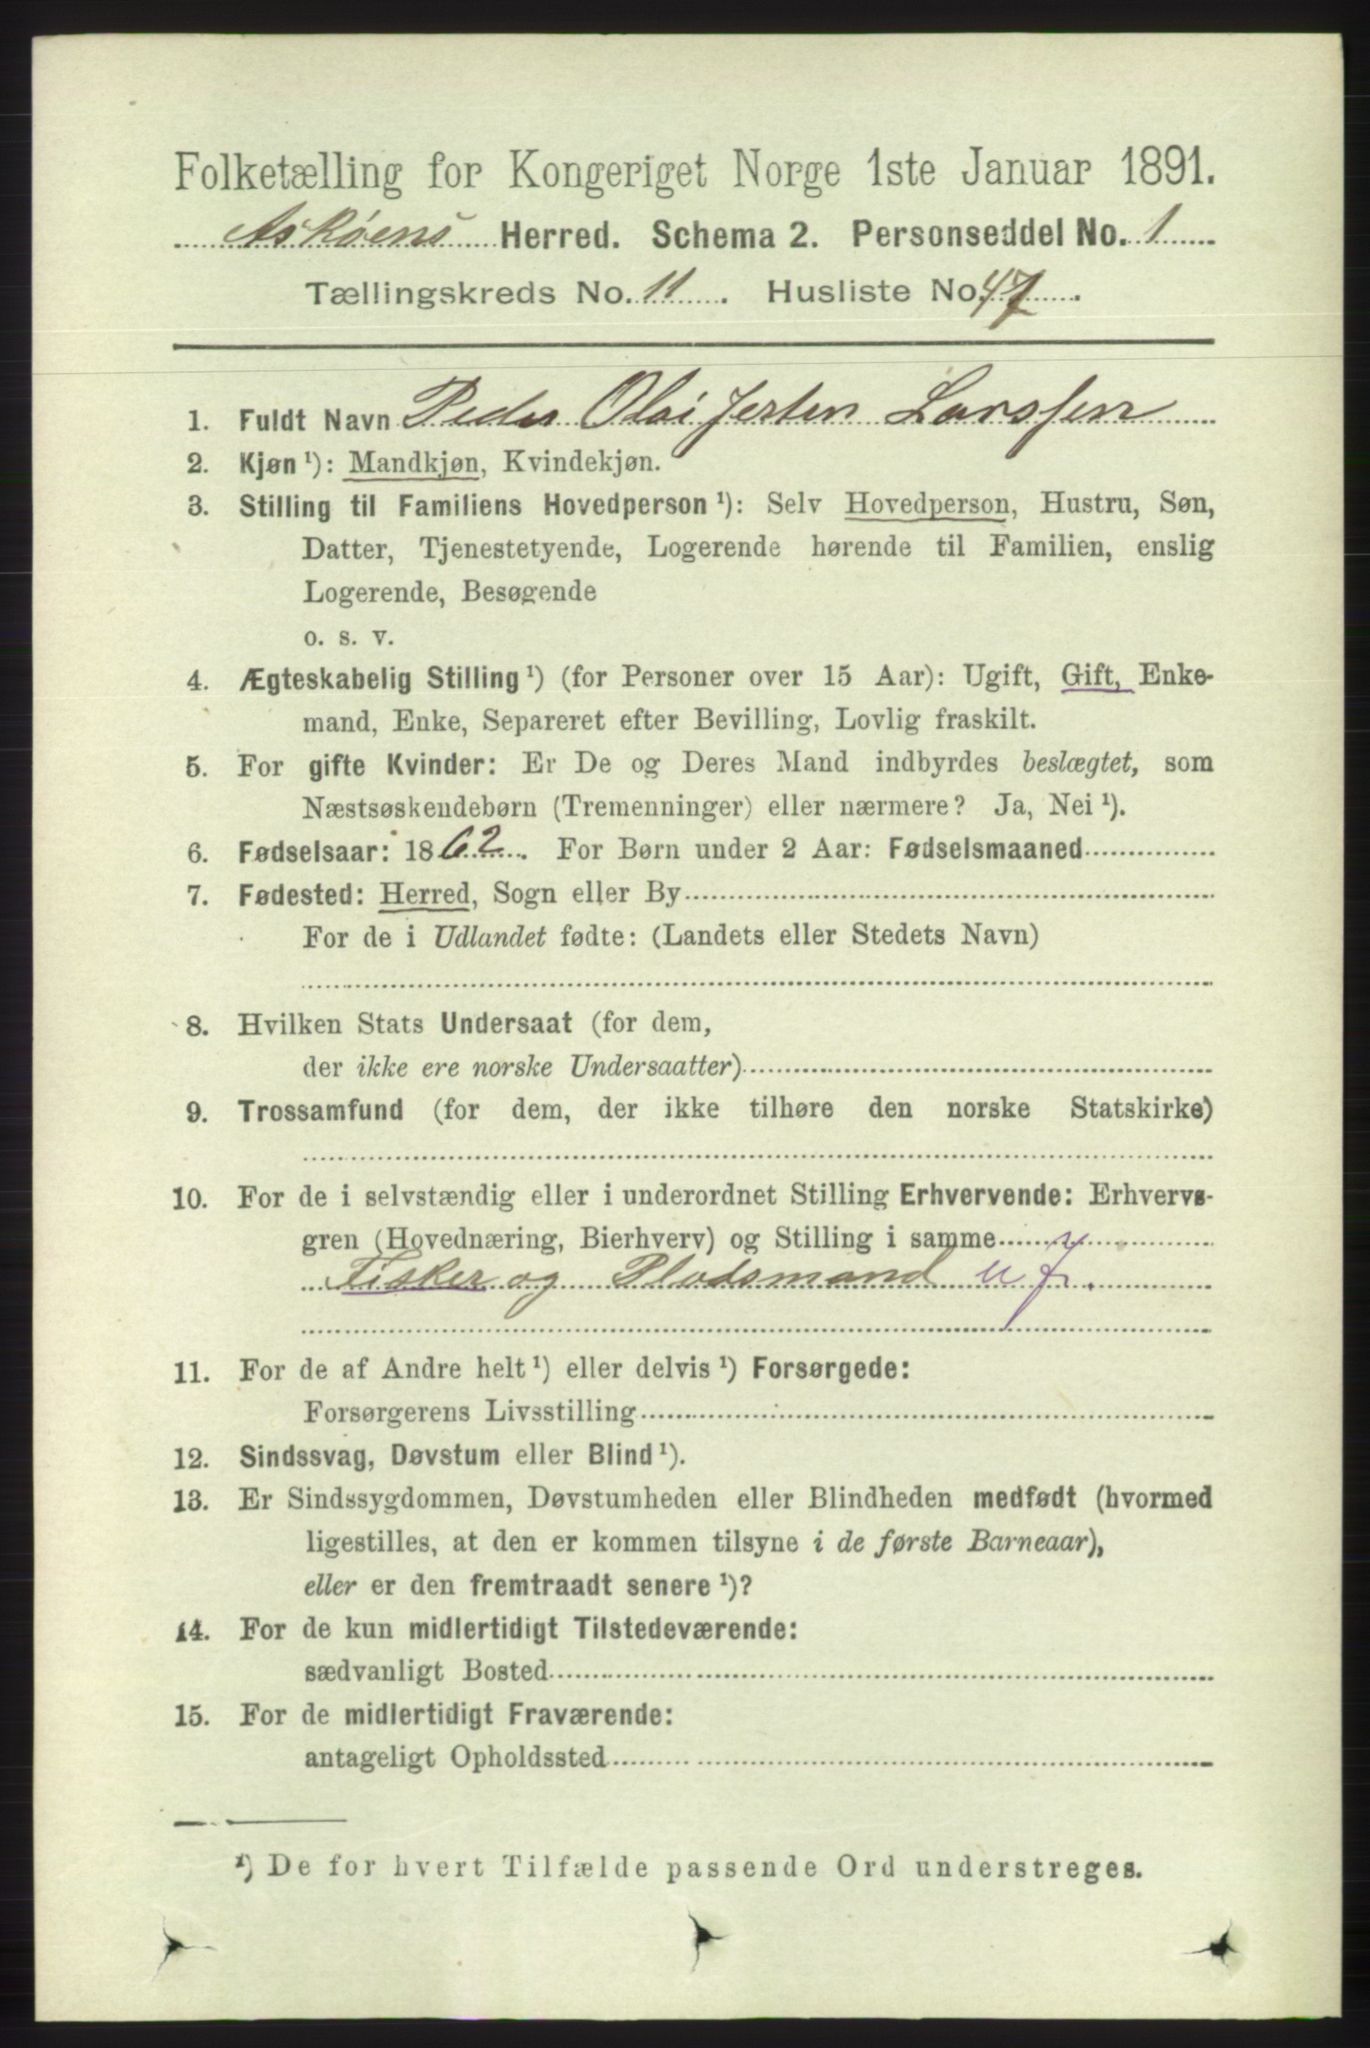 Folketælling for Kongeriget Norge 1ste Januar 1891.
Askøens Herred. Schema 2. Personseddel No. 1
Tællingskreds No. 11. Husliste No. 47.
1. Fuldt Navn Peder Olai Larssen
2. Kjøn ¹): Mandkjøn, Kvindekjøn.
3. Stilling til Familiens Hovedperson ¹): Selv Hovedperson, Hustru, Søn,
Datter, Tjenestetyende, Logerende hørende til Familien, enslig
Logerende, Besøgende
o. s. v.
4. Ægteskabelig Stilling ¹) (for Personer over 15 Aar): Ugift, Gift, Enke-
mand, Enke, Separeret efter Bevilling, Lovlig fraskilt.
5. For gifte Kvinder: Er De og Deres Mand indbyrdes beslægtet, som
Næstsøskendebørn (Tremenninger) eller nærmere? Ja, Nei ¹).
6. Fødselsaar: 1862. For Børn under 2 Aar: Fødselsmaaned
7. Fødested: Herred, Sogn eller By
For de i Udlandet fødte: (Landets eller Stedets Navn)
8. Hvilken Stats Undersaat (for dem,
der ikke ere norske Undersaatter)
9. Trossamfund (for dem, der ikke tilhøre den norske Statskirke)
10. For de i selvstændig eller i underordnet Stilling Erhvervende: Erhvervs-
gren (Hovednæring, Bierhverv) og Stilling i samme
Fisker og Pladsmand u f.
11. For de af Andre helt ¹) eller delvis ¹) Forsørgede:
Forsørgerens Livsstilling
12. Sindssvag, Døvstum eller Blind ¹).
13. Er Sindssygdommen, Døvstumheden eller Blindheden medfødt (hvormed
ligestilles, at den er kommen tilsyne i de første Barneaar),
eller er den fremtraadt senere ¹)?
14. For de kun midlertidigt Tilstedeværende:
sædvanligt Bosted
15. For de midlertidigt Fraværende:
antageligt Opholdssted
¹) De for hvert Tilfælde passende Ord understreges.